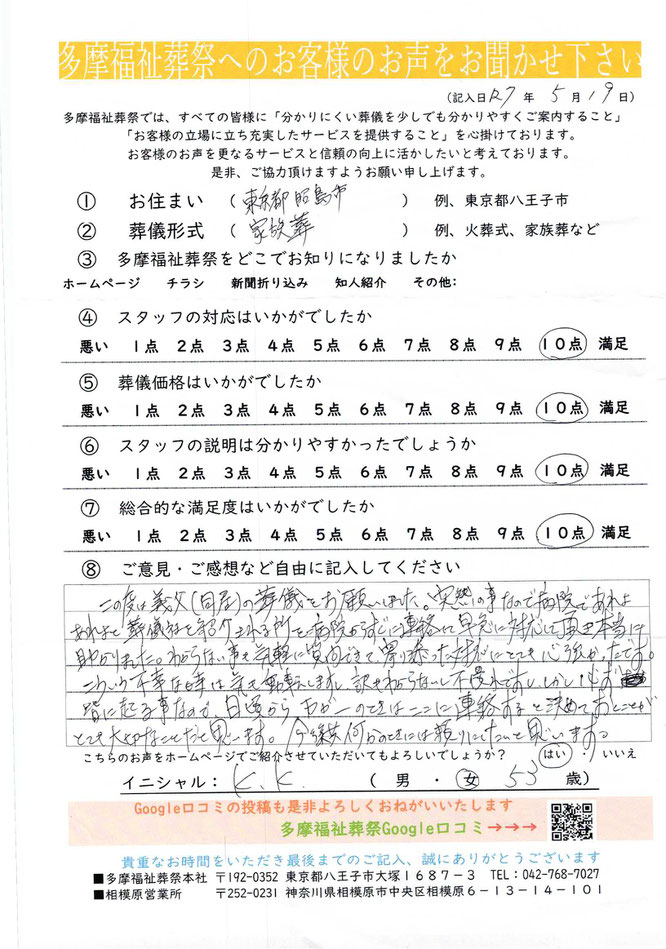 多摩福祉葬祭へのお客様のお声をお聞かせ下さい
(記入日R7年 5月19日)
多摩福祉葬祭では、すべての皆様に「分かりにくい葬儀を少しでも分かりやすくご案内すること」
「お客様の立場に立ち充実したサービスを提供すること」を心掛けております。
お客様のお声を更なるサービスと信頼の向上に活かしたいと考えております。
是非、ご協力頂けますようお願い申し上げます。
① お住まい (東京都昭島市) 例、東京都八王子市
② 葬儀形式 (家族葬) 例、火葬式、家族葬など
③ 多摩福祉葬祭をどこでお知りになりましたか
ホームページ チラシ 新聞折り込み 知人紹介 その他:
④ スタッフの対応はいかがでしたか
悪い 1点 2点 3点 4点 5点 6点 7点 8点 9点 10点 満足
⑤ 葬儀価格はいかがでしたか
悪い 1点 2点 3点 4点 5点 6点 7点 8点 9点 10点 満足
⑥ スタッフの説明は分かりやすかったでしょうか
悪い 1点 2点 3点 4点 5点 6点 7点 8点 9点 10点 満足
⑦ 総合的な満足度はいかがでしたか
悪い 1点 2点 3点 4点 5点 6点 7点 8点 9点 10点 満足
⑧ ご意見・ご感想など自由に記入してください
この度は義父(同居)の葬儀をお願いしました。突然の事なので病院であれよ
あれよと葬儀社を紹介される所を病院からすぐに連絡し早急に対応して頂き本当に
助かりました。わからない事も気軽に質問できて寄り添った対応にとても心強かったです。
こういう不幸な時は気も動転しますし、訳もわからないし不慣れですが、しかし必ず
皆に起る事なので日頃からもしものときはここに連絡すると決めておくことが
とても大切なことだと思います。今後共何かのときには頼りにしたいと思います。
こちらのお声をホームページでご紹介させていただいてもよろしいでしょうか? はい・いいえ
イニシャル: K.K. (男・女 53歳)
Google口コミの投稿も是非よろしくおねがいいたします
多摩福祉葬祭Google口コミ→→→
貴重なお時間をいただき最後までのご記入、誠にありがとうございます
■多摩福祉葬祭本社 〒192-0352 東京都八王子市大塚1687-3 TEL:042-768-7027
■相模原営業所 〒252-0231 神奈川県相模原市中央区相模原6-13-14-101